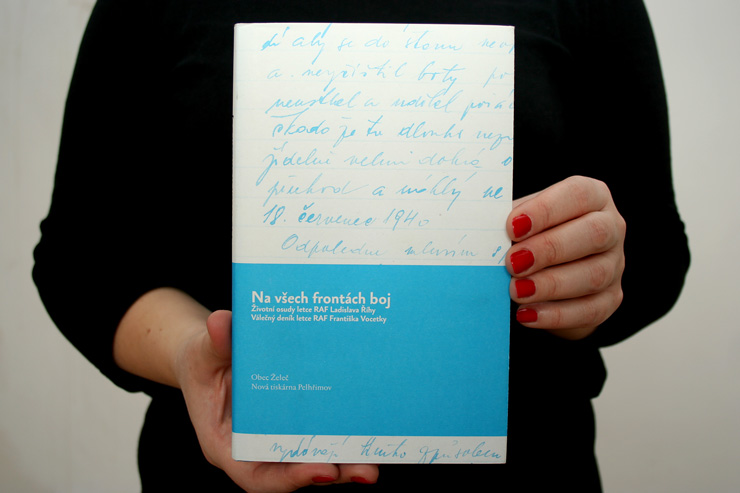 aby se do stanu
a. nevyjížtil boty po
neustlal a udělal pořád
Škoda že tu dlouho
jídelně velmi dobrá
příchod a náhlý
18. červenec 1940
Odpoledne mluvím
Na všech frontách boj
Životní osudy letce RAF Ladislava Říhy
Válečný deník letce RAF Františka Vocetky
Obec Želeč
Nová tiskárna Pelhřimov
tímto způsobem